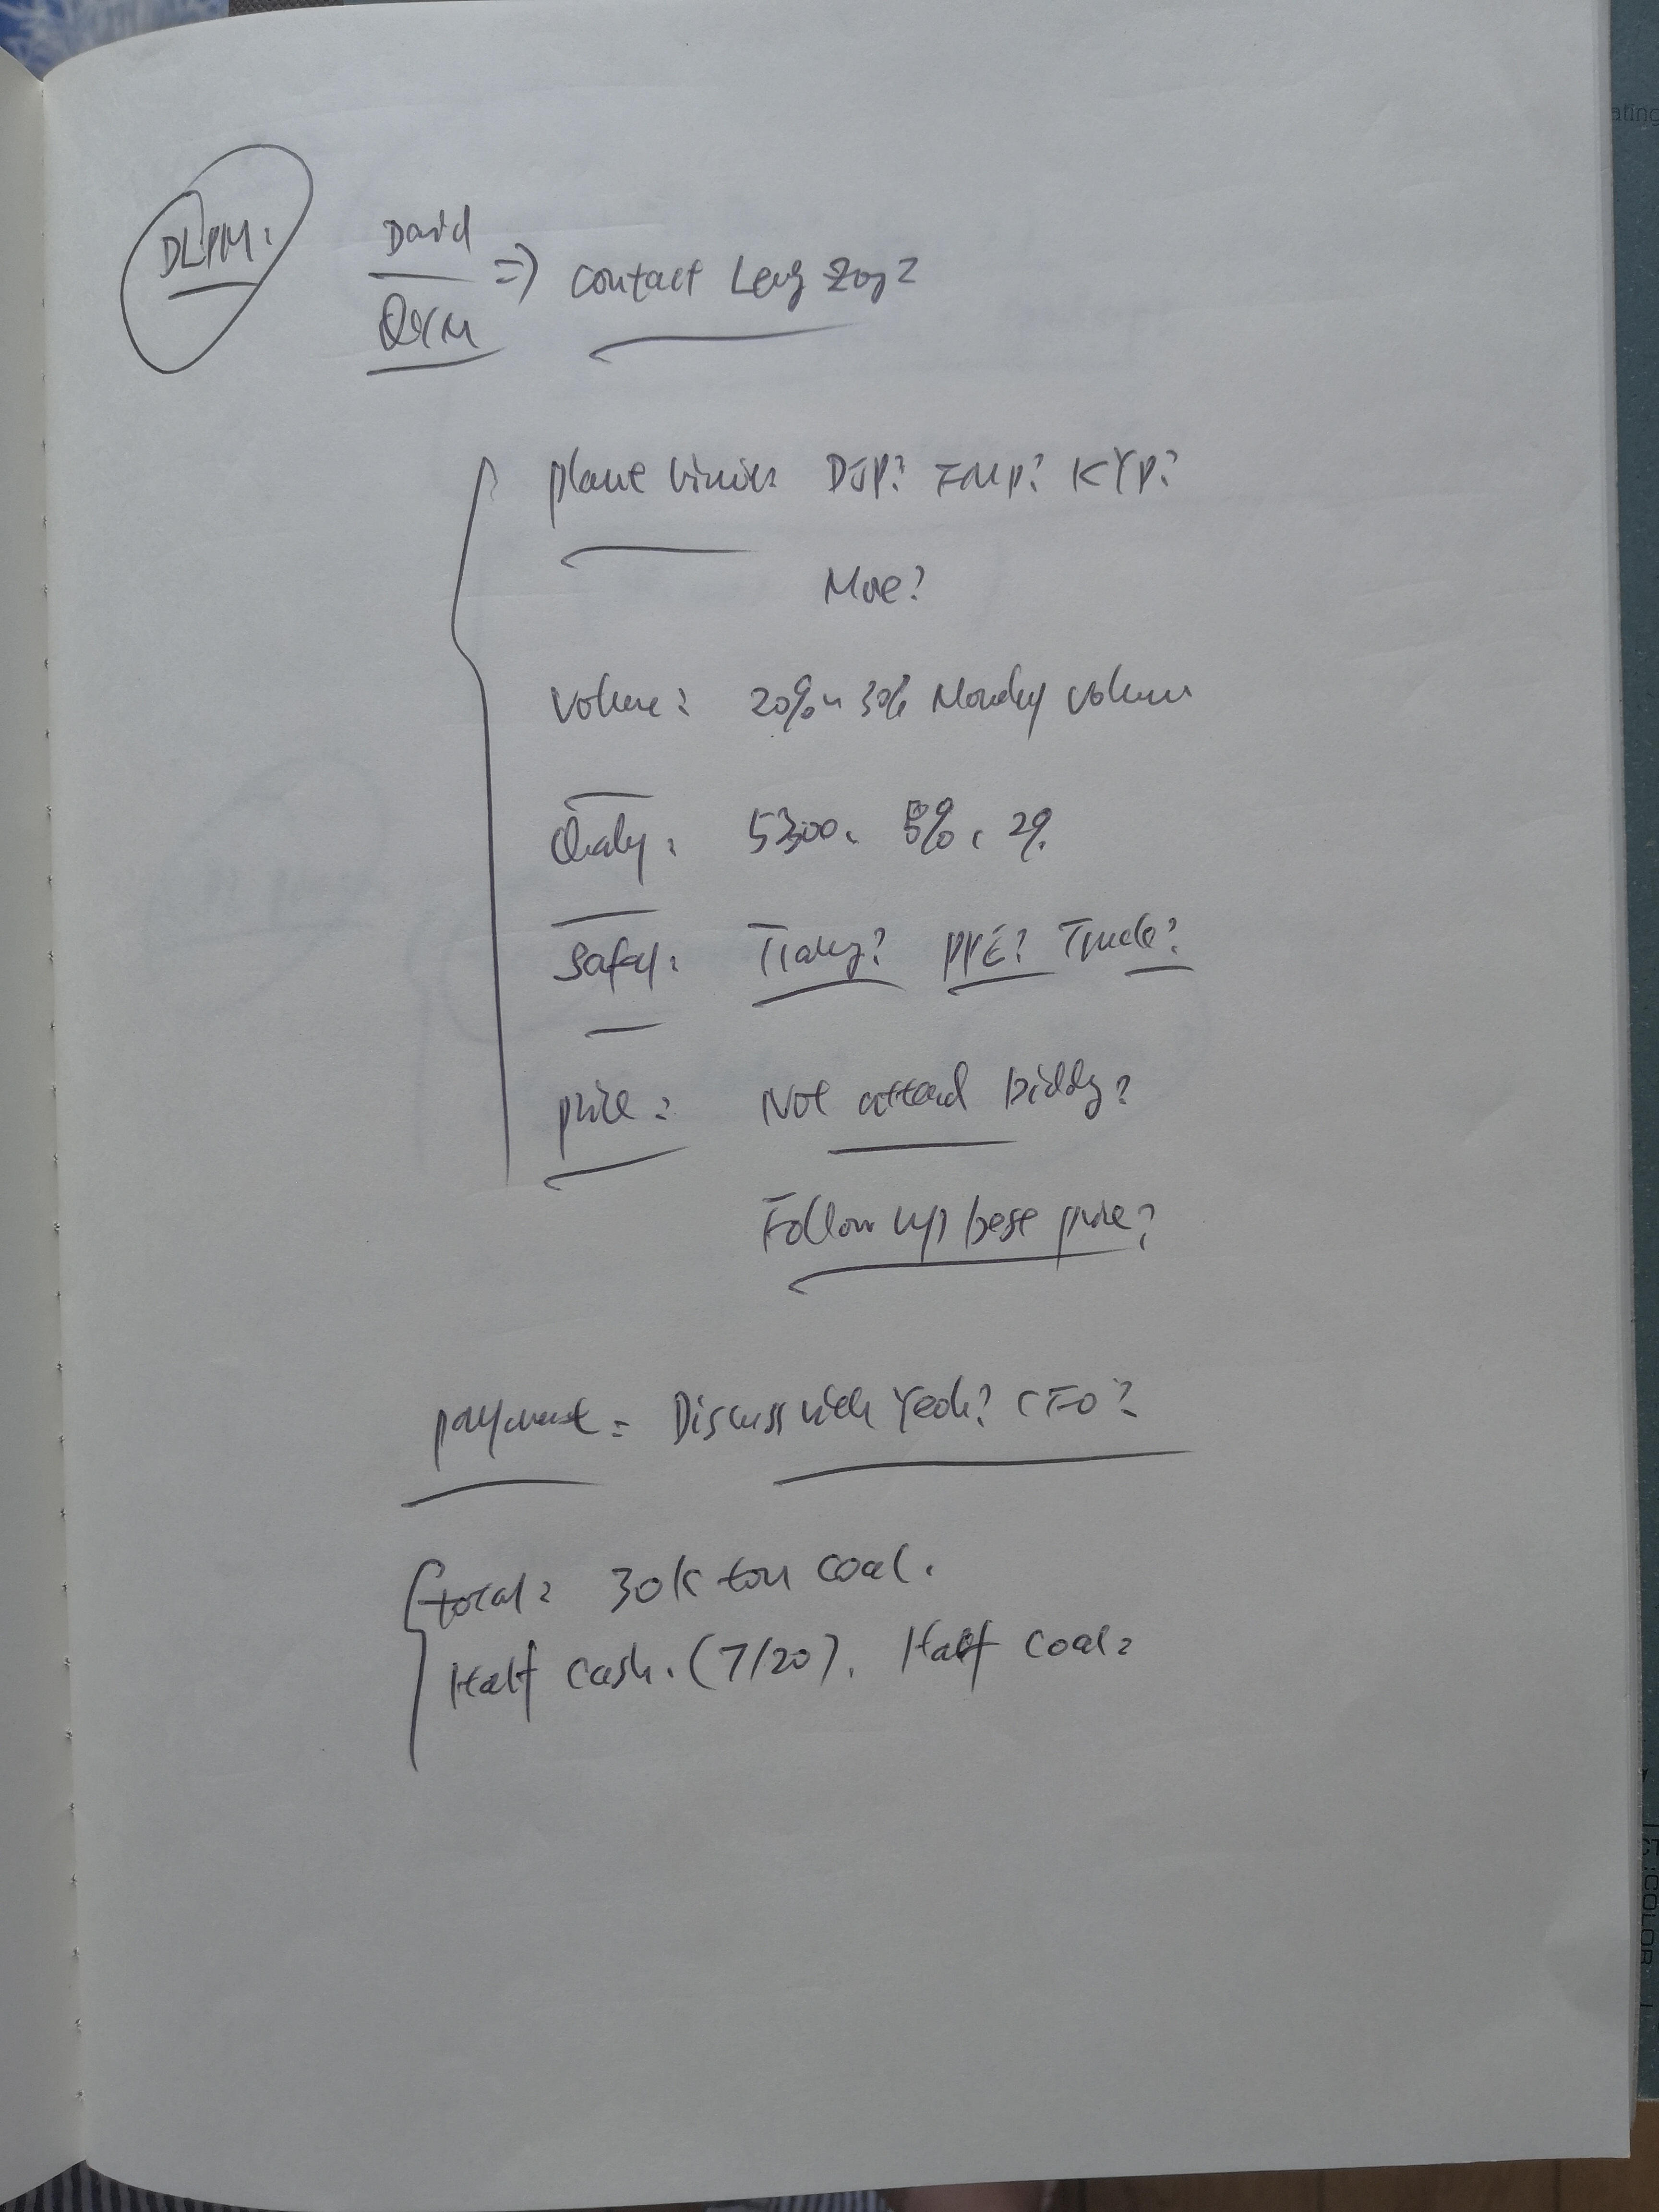 DLPM:
David
contact Leng
DJP? FMP? KYP?
More?
Volume: 20% ~ 30% Monthly volume
Quality: 5300, 5%, 2%
Safety: PPE? Truck?
price: Not attend bidding?
Follow up best price?
payment: Discuss with Yeoh? CFO?
total: 30K ton coal.
Half cash. (7/20). Half coal:
ating
COLOR